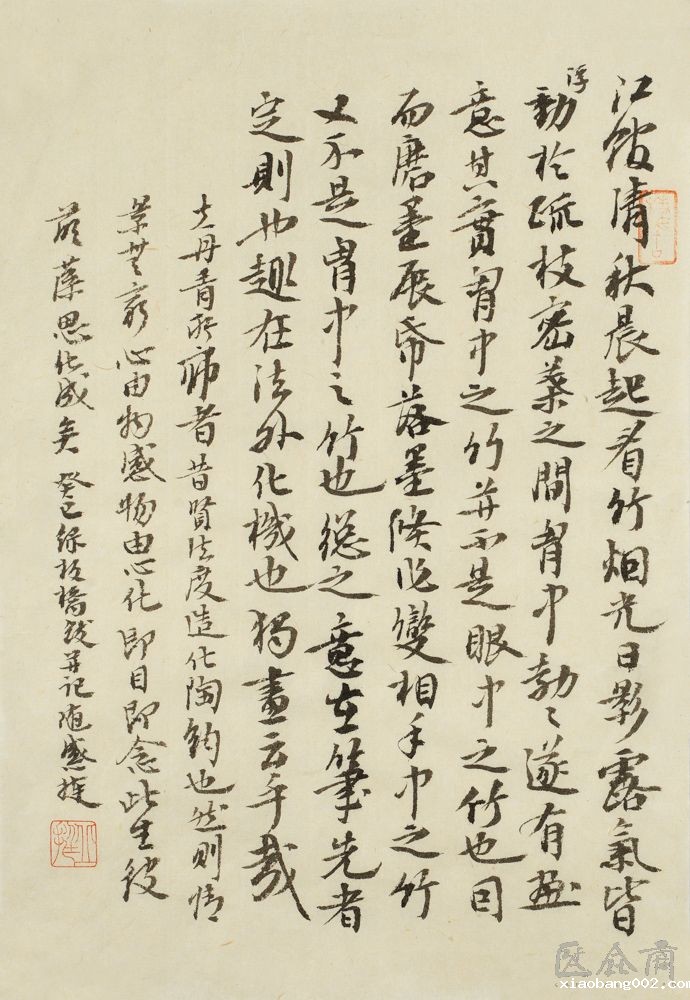 江館清秋晨起看竹烟光日影露氣皆
浮動於疏枝密葉之間胷中勃々遂有畫
意其實胷中之竹并不是眼中之竹也因
而磨墨展帋落墨倐作變相手中之竹
又不是胷中之竹也緫之意在筆先者
定則也趣在法外化機也獨畫云乎哉
丹青所師者昔賢法度造化陶鈞也然則情
景無窮心由物感物由心化即目即念此生彼
萌藻思化成矣 癸巳録板橋跋并记随感 捷
xiaobang002.com